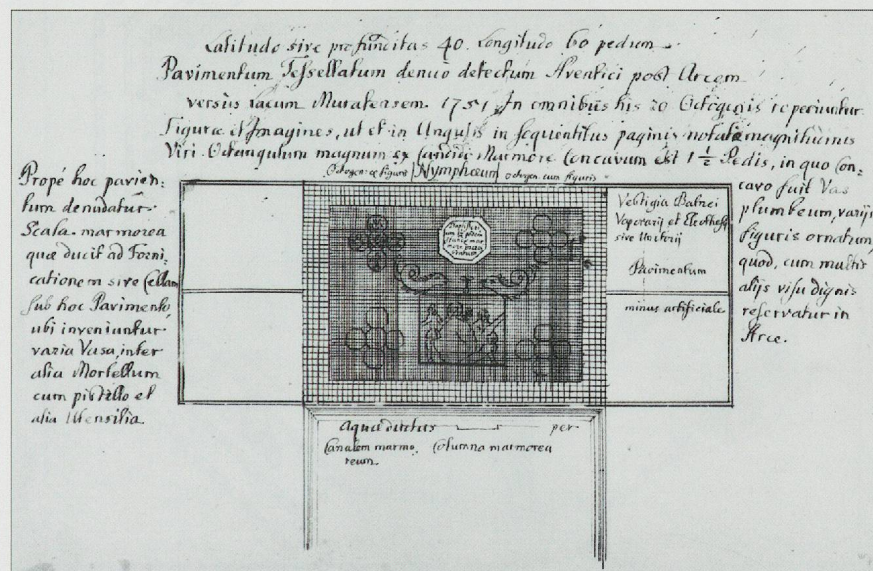 Latitudo sive profunditas 40. Longitudo 60 pedum.
Pavimentum Tessellatum denuò detectum Aventici post Arcem
versùs lacum Muratensem. 1751. In omnibus his 20 Octogonis reperiuntur
Figuræ et Imagines, ut et in Angulis in sequentibus paginis notatæ magnitudinis
Viri. Octangulum magnum ex Candido Marmore Concavum est 1 1/2 Pedis, in quo Con-
cavo fuit Vas
plumbeum, varijs
figuris ornatum,
quod, cum multis
alijs visu dignis
reservatur in
Arce.
Propè hoc pavien:
tum denudatur
Scala marmorea
quæ ducit ad Forni-
cationem sive Cellam
sub hoc Pavimento
ubi inveniuntur
varia Vasa, inter
alia Mortellum
cum pistillo et
alia Utensilia.
Octogonæ figuris Nymphæum octogon. cum figuris
Vestigia Balnei
Vaporarij et Eleothesij
sive Unctorij
Pavimentum
minus artificiale
Aquæductus per
Canalem marmo- Columna marmorea
reum.